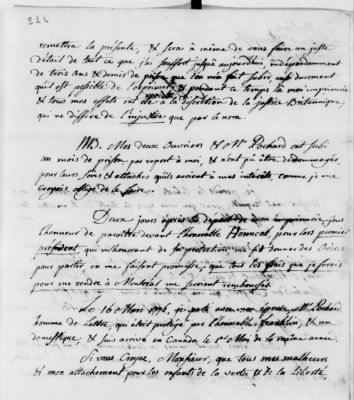 remettra la présente, & sera à même de vous faire un juste
détail de tout ce que j'ai souffert jusqu'à aujourd'hui, indépendamment
de trois ans & demi de prison que l'on m'a fait subir, aussi durement
qu'il est possible de l'exprimer, & pendant ce temps là mon imprimerie
& tous mes effets ont été à la discrétion de la justice Britannique,
qui ne diffère de l'injustice que par le nom.
Mes deux Ouvriers & Mr. Pochard ont subi
un mois de prison par raport à moi, & n'ont pû être dédommagés,
pour leurs soins & attachés qu'ils avoient à mes intérêts, comme je me
croyois obligé de le faire.
Deux jours après le départ de mon imprimerie, j'eus
l'honneur de paroître devant l'honorable Hancock, pour lors premier
président, qui m'honorant de sa protection, me fit donner des Ordres
pour partir, en me faisant promesse, que tous les frais que je ferois
pour me rendre à Montréal me seroient remboursés.
Le 16 Mars 1776, je partis avec mon épouse, Mr. Pochard,
homme de Lettre, qui étoit protégé par l'honorable franklin, & un
domestique, & suis arrivé en Canada le de la même année.
Si vous Croyez, Monsieur, que tous mes malheurs
& mon attachement pour les enfants de la vertu & de la Liberté,